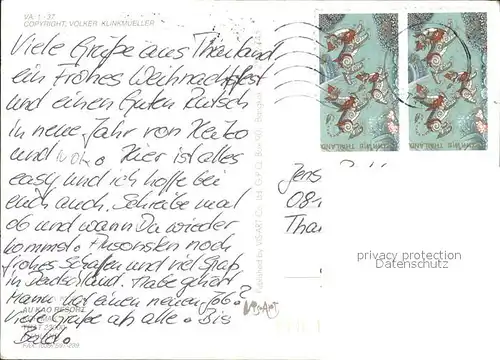 VA. 1 - 37
COPYRIGHT, VOLKER KLINKMUELLER
Viele Grüße aus Thailand,
ein Frohes Weihnachtsfest
und einen Guten Rutsch
in neue Jahr von Heiko
und Hier ist alles
easy und ich hoffe bei
euch auch. Schreibe mal
ob und wann Du wieder
kommst. Ansonsten noch
frohes Schaffen und viel Spaß
in Deutschland. Habe gehört
Mann hat einen neuen Job?
viele Grüße an alle. Bis
Bald.
AU KAO RESORT
THAILAND
THAILAND
Jens
08
Tha
privacy protection
Datenschutz